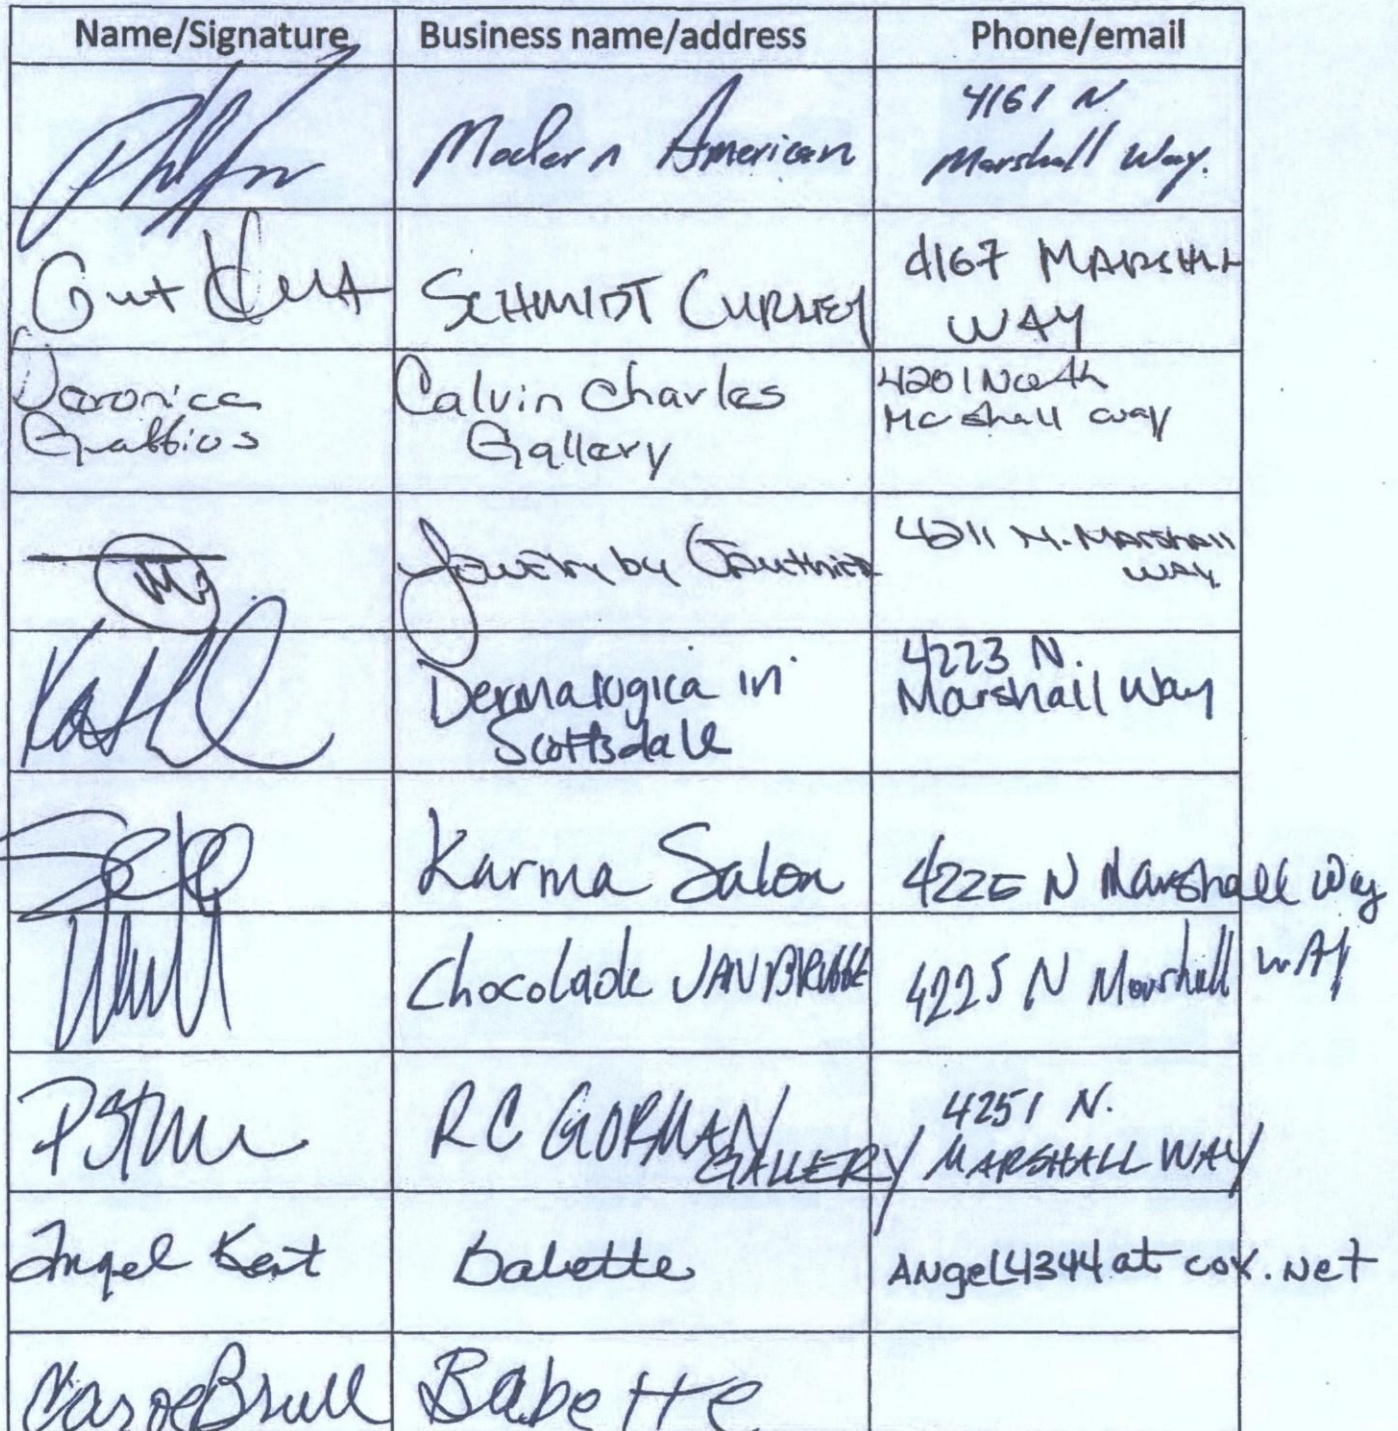 Name/Signature Business name/address Phone/email
Modern American
4161 N.
Marshall Way.
SCHMIDT
4167 MARSHLL
WAY
Veronica
Calvin Charles
Gallery
4201 North
Marshall way
Jewelry by Gauthier
4211 N. Marshall
WAY
Dermalogica in
Scottsdale
4223 N.
Marshall Way
Karma Salon 4225 N Marshall Way
Chocolade VANBRUGGE 4225 N Marshall WAY
RC GORMAN
GALLERY
4251 N.
MARSHALL WAY
Angel Kent Babette ANgeL4344 at cox.Net
Babette